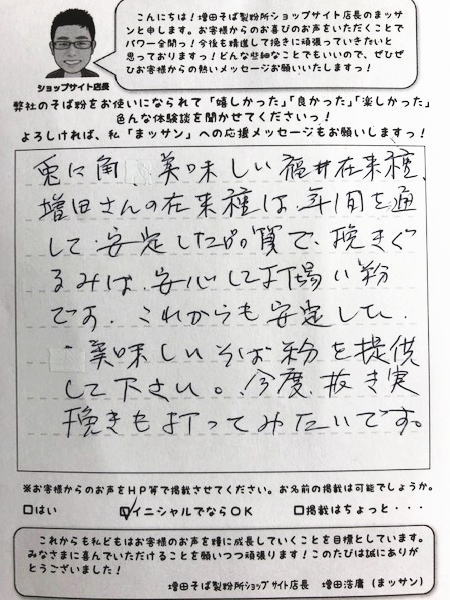 こんにちは！増田そば製粉所ショップサイト店長のまッサン
と申します。お客様からのお喜びのお声をいただくことで
パワー全開っ！今後も精進して挽きに頑張っていきたいと
思っておりますっ！どんな些細なことでもいいので、ぜひぜ
ひお客様からの熱いメッセージお願いいたしますっ！
ショップサイト店長
弊社のそば粉をお使いになられて「嬉しかった」「良かった」「楽しかった」
色んな体験談を聞かせてくださいっ！
よろしければ、私「まッサン」への応援メッセージもお願いしますっ！
兎に角、美味しい福井在来種、
増田さんの在来種は、年間を通
して、安定した品質で、挽きぐ
るみは、安心して打場い粉
です。これからも安定したい、
美味しいそば粉を提供
して下さい。今度、抜き実
挽きも打ってみたいです。
※お客様からのお声をHP等で掲載させてください。お名前の掲載は可能でしょうか。
□はい ☑イニシャルでならOK □掲載はちょっと・・・
これからも私どもはお客様のお声を糧に成長していくことを目標としています。
みなさまに喜んでいただけることを願いつつ頑張ります！このたびは誠にありが
とうございました！
増田そば製粉所ショップサイト店長 増田浩庸（まッサン）